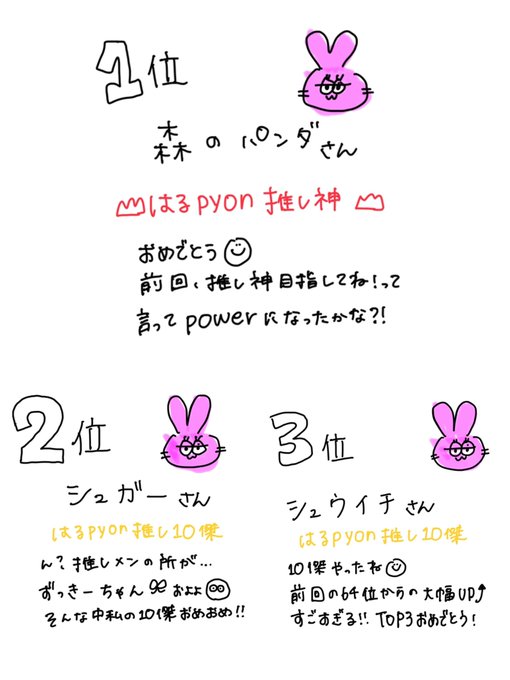 1位
森のパンダさん
はるpyon推し神
おめでとう
前回、推し神目指してね!って
言ってpowerになったかな?!
2位
シュガーさん
はるpyon推し10傑
ん?推しメンの所が...
ずっきーちゃん およよ
そんな中私の10傑おめおめ!!
3位
シュウイチさん
はるpyon推し10傑
10傑やったね
前回の64位からの大幅UP↑
すごすぎる!! TOP3おめでとう!